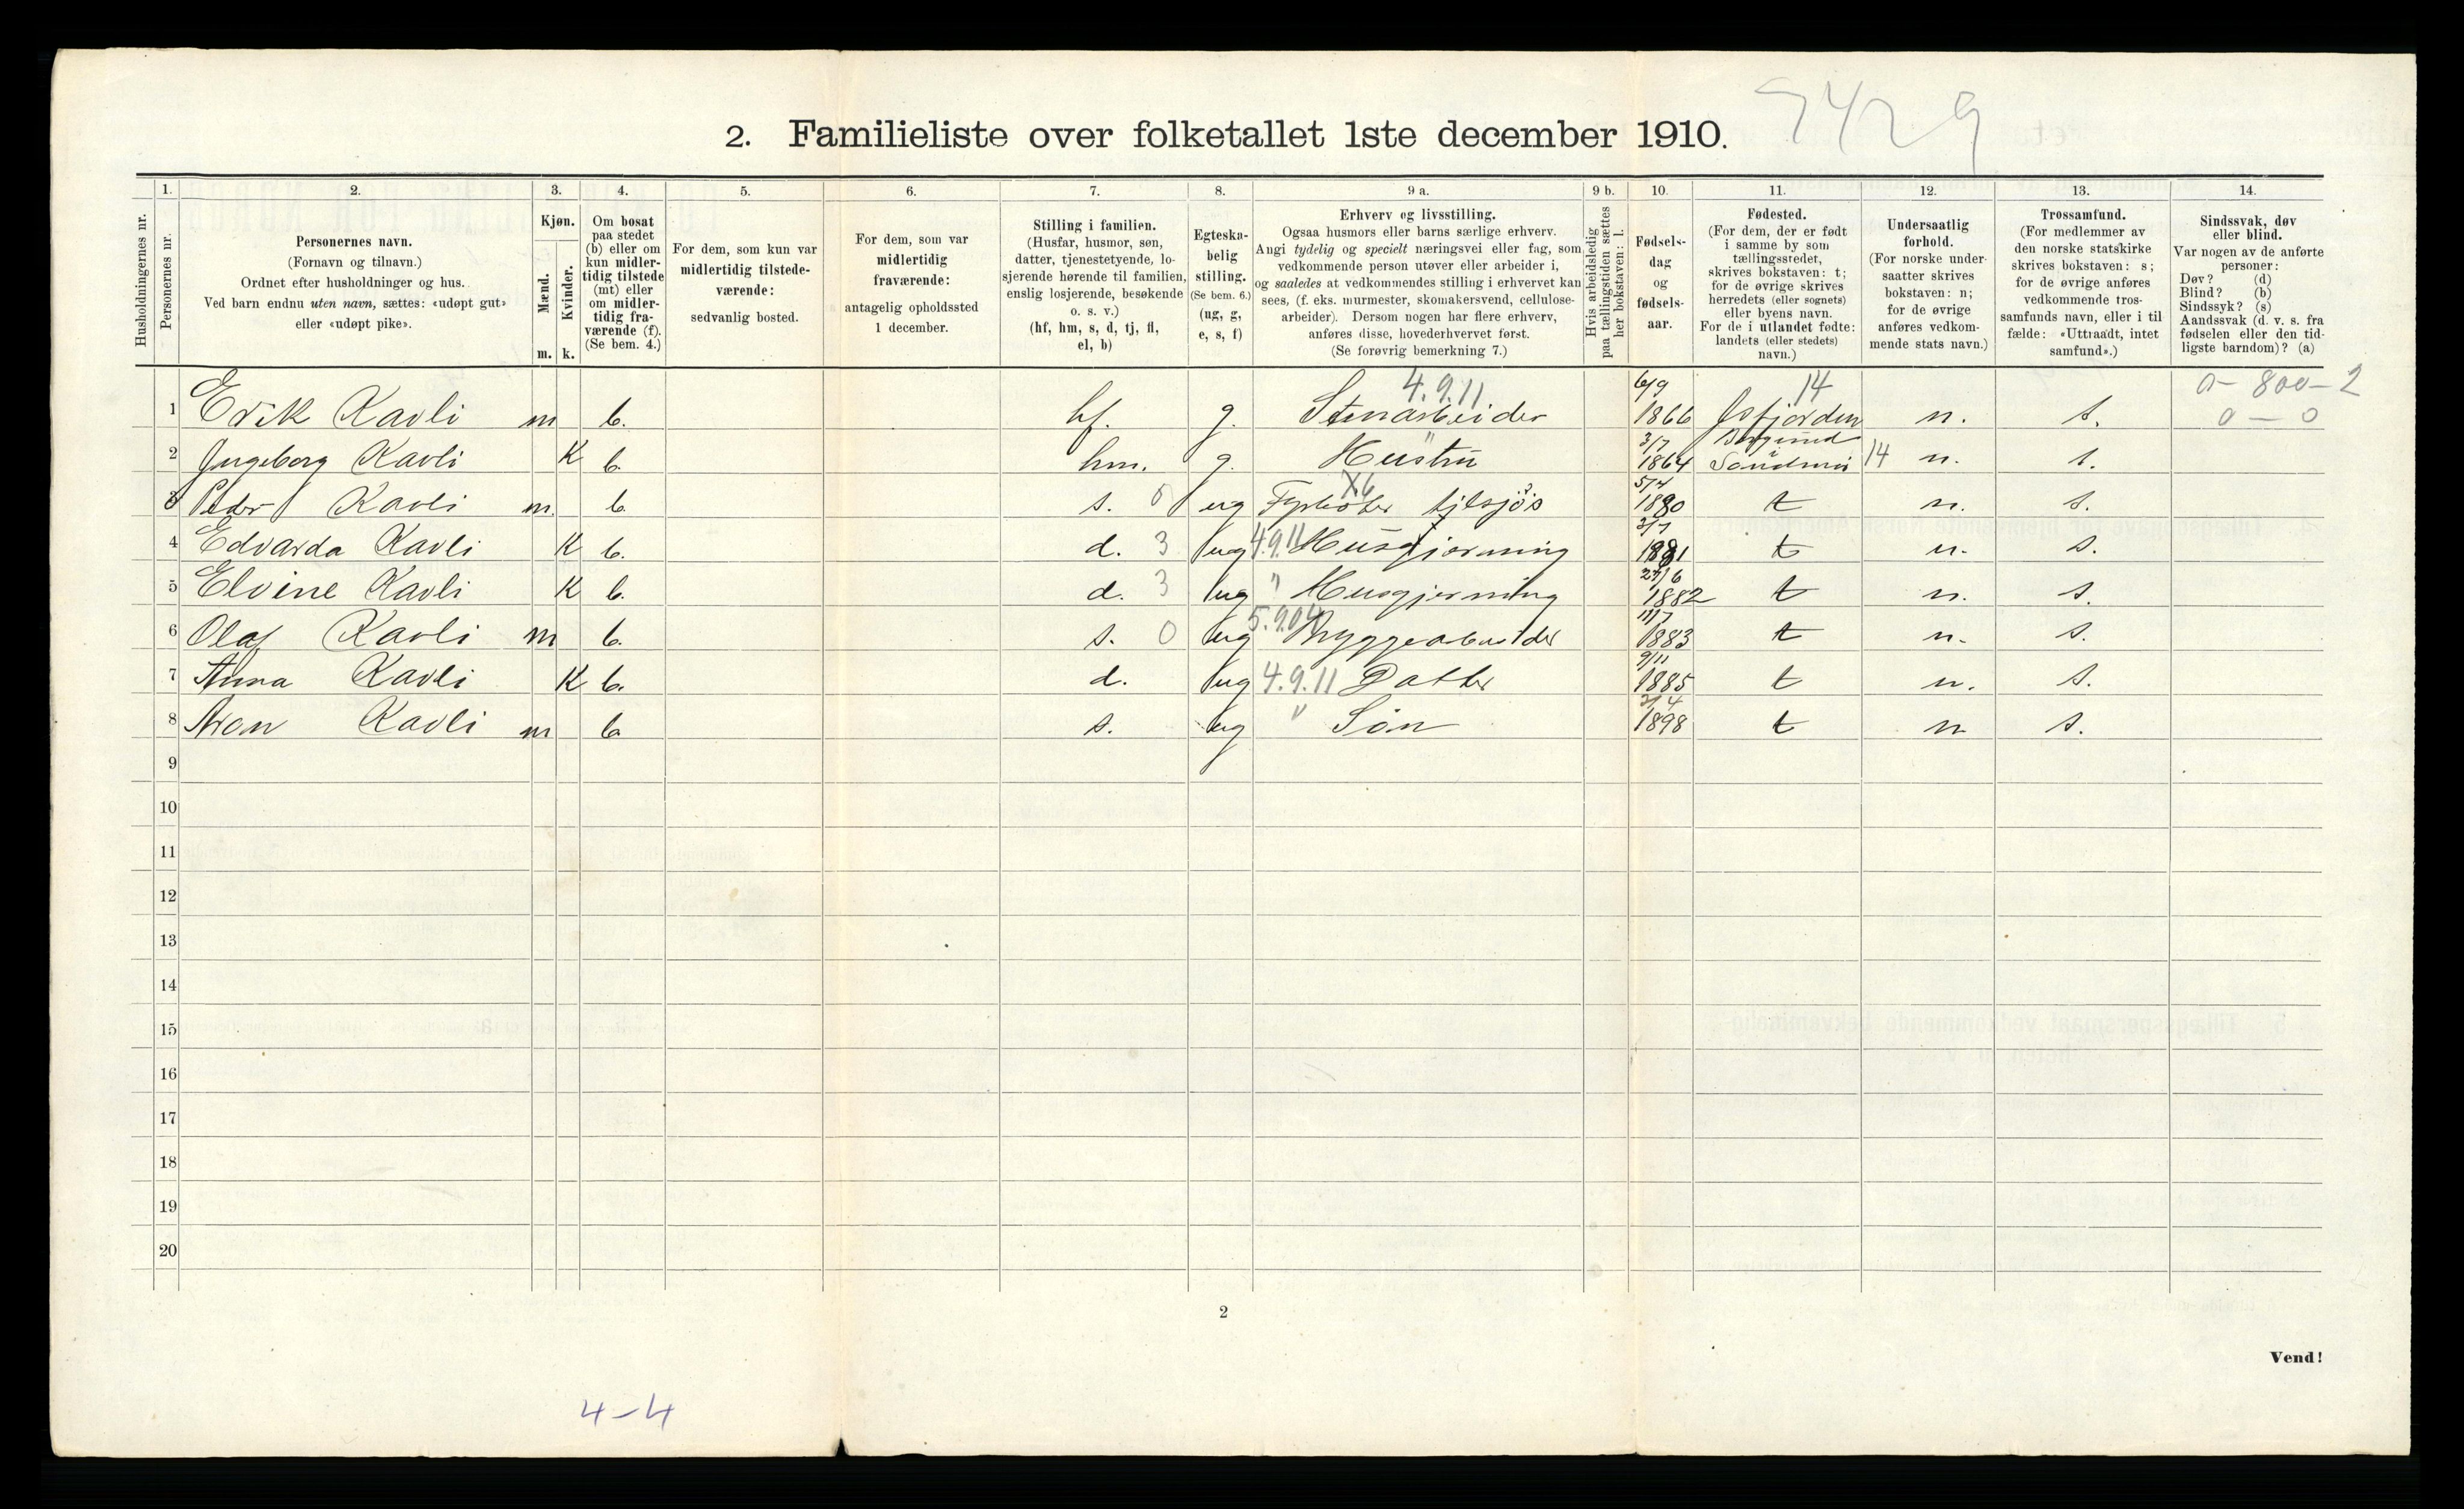 9429
2. Familieliste over folketallet 1ste december 1910.
Husholdningernes nr.
1. Personernes nr.
2. Personernes navn. (Fornavn og tilnavn.) Ordnet efter husholdninger og hus. Ved barn endnu uten navn, sættes: «udøpt gut» eller «udøpt pike».
3. Kjøn. Mænd. m. Kvinder. k.
4. Om bosat paa stedet (b) eller om kun midlertidig tilstede (mt) eller om midlertidig fraværende (f). (Se bem. 4.)
5. For dem, som kun var midlertidig tilstedeværende: sedvanlig bosted.
6. For dem, som var midlertidig fraværende: antagelig opholdssted 1 december.
7. Stilling i familien. (Husfar, husmor, søn, datter, tjenestetyende, losjerende hørende til familien, enslig losjerende, besøkende o. s. v.) (hf, hm, s, d, tj, fl, el, b)
8. Egteskabelig stilling. (Se bem. 6.) (ug, g, e, s, f)
9 a. Erhverv og livsstilling. Ogsaa husmors eller barns særlige erhverv. Angi tydelig og specielt næringsvei eller fag, som vedkommende person utøver eller arbeider i, og saaledes at vedkommendes stilling i erhvervet kan sees, (f. eks. murmester, skomakersvend, cellulose-arbeider). Dersom nogen har flere erhverv, anføres disse, hovederhvervet først. (Se forøvrig bemerkning 7.)
9 b. Hvis arbeidsledig paa tællingstiden sættes her bokstaven: l.
10. Fødselsdag og fødselsaar.
11. Fødested. (For dem, der er født i samme by som tællingsstedet, skrives bokstaven: t; for de øvrige skrives herredets (eller sognets) eller byens navn. For de i utlandet fødte: landets (eller stedets) navn.)
12. Undersaatlig forhold. (For norske undersaatter skrives bokstaven: n; for de øvrige anføres vedkommende stats navn.)
13. Trossamfund. (For medlemmer av den norske statskirke skrives bokstaven: s; for de øvrige anføres vedkommende trossamfunds navn, eller i tilfælde: «Uttraadt, intet samfund».)
14. Sindssvak, døv eller blind. Var nogen av de anførte personer: Døv? (d) Blind? (b) Sindssyk? (s) Aandssvak (d. v. s. fra fødselen eller den tidligste barndom)? (a)
1 Erik Kavli m b. hf. g. 4.9.11 Stenarbeider 6/9 1866 14 Isfjorden n. s. 0-800-2 0-0
2 Ingeborg Kavli K b. hm. g. " Hustru 3/7 1864 Borgund Søndmør 14 n. s.
3 Peder Kavli m. b. s. 0 ug X6 Fyrbøter tilsjøs 5/4 1880 t n. s.
4 Edvarda Kavli K b. d. 3 ug 4.9.11 Husgjerning 3/7 1881 t n. s.
5 Elvine Kavli K b. d. 3 ug " Husgjerning 27/6 1882 t n. s.
6 Olaf Kavli m b. s. 0 ug 5.9.04 Bryggearbeider 11/7 1883 t n. s.
7 Anna Kavli K b. d. ug 4.9.11 Datter 9/11 1885 t n. s.
8 Aron Kavli m b s. ug " Søn 3/4 1898 t n s.
9
10
11
12
13
14
15
16
17
18
19
20
2
Vend!
4-4